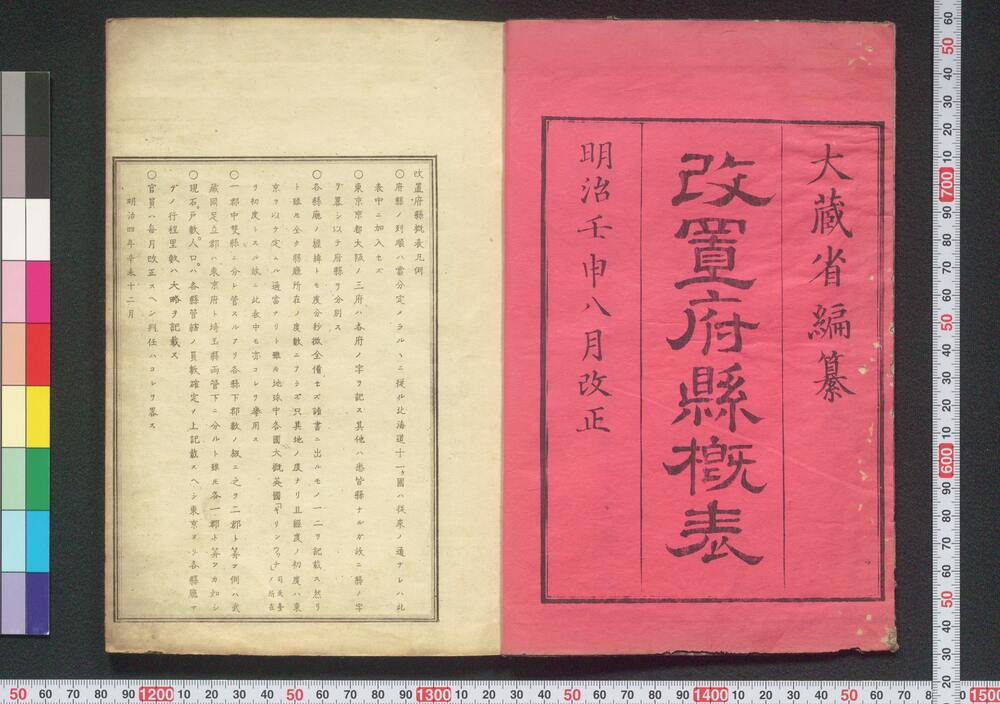 大藏省編纂
改置府縣概表
明治壬申八月改正
改置府縣概表凡例
○府縣ノ列順ハ當分定メラルヽニ從ル北海道十一ヶ國ハ從來ノ通ナレハ此
表中ニ加入セズ
○東京京都大阪ノ三府ハ各府ノ字ヲ記ス其他ハ悉皆縣ナルガ故ニ縣ノ字
ヲ畧シ以テ府縣ヲ分別ス
○各縣廳ノ經緯トモ度分秒微全備セズ諸書ニ出ルモノ一二ヲ記載ス然リ
ト雖モ全ク縣廳所在ノ度數ニアラズ只其地ノ度ナリ且經度ノ初度ハ東
京ヲ以テ定ムル適當ナリト雖モ地球中各國大概英國「ギリンウヰチ」ノ所在
ヲ初度トスル故ニ此表中モ亦コレヲ學用ス
○一郡中雙縣ニ分レ管スルアリ各縣下郡數ノ級ニ之ヲ二郡ト算フ例ハ武
藏國足立郡ハ東京府ト埼玉縣両管下ニ分ルト雖モ各一郡ト算フカ如シ
○現石。戸數。人口。ハ各縣管轄ノ員數確定ノ上記載スヘシ東京ヨリ各縣廳マ
デノ行程里數ハ大略ヲ記載ス
○官員ハ毎月改正スヘシ判任ハコレヲ畧ス
明治四年辛未十二月